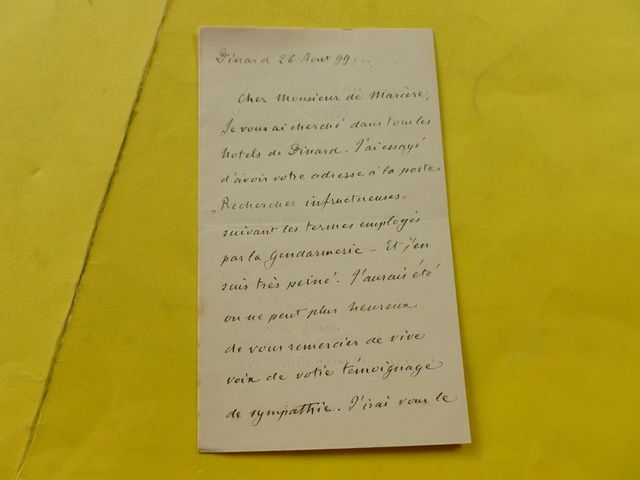 Dinard 26 Aout 99...
Cher Monsieur de Marcère,
Je vous ai cherché dans tous les
hotels de Dinard - J'ai essayé
d'avoir votre adresse à la poste
"Recherches infructueuses"
suivant les termes employés
par la Gendarmerie - Et j'en
suis très peiné. J'aurais été
on ne peut plus heureux
de vous remercier de vive
voix de votre témoignage
de sympathie. J'irai vous le